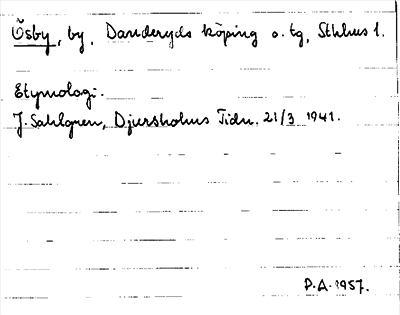 Ösby, by, Danderyds köping o. tg, Sthlms l.
Etymologi.
J. Sahlgren, Djursholms Tidn. 21/3 1941.
P.A. 1957.